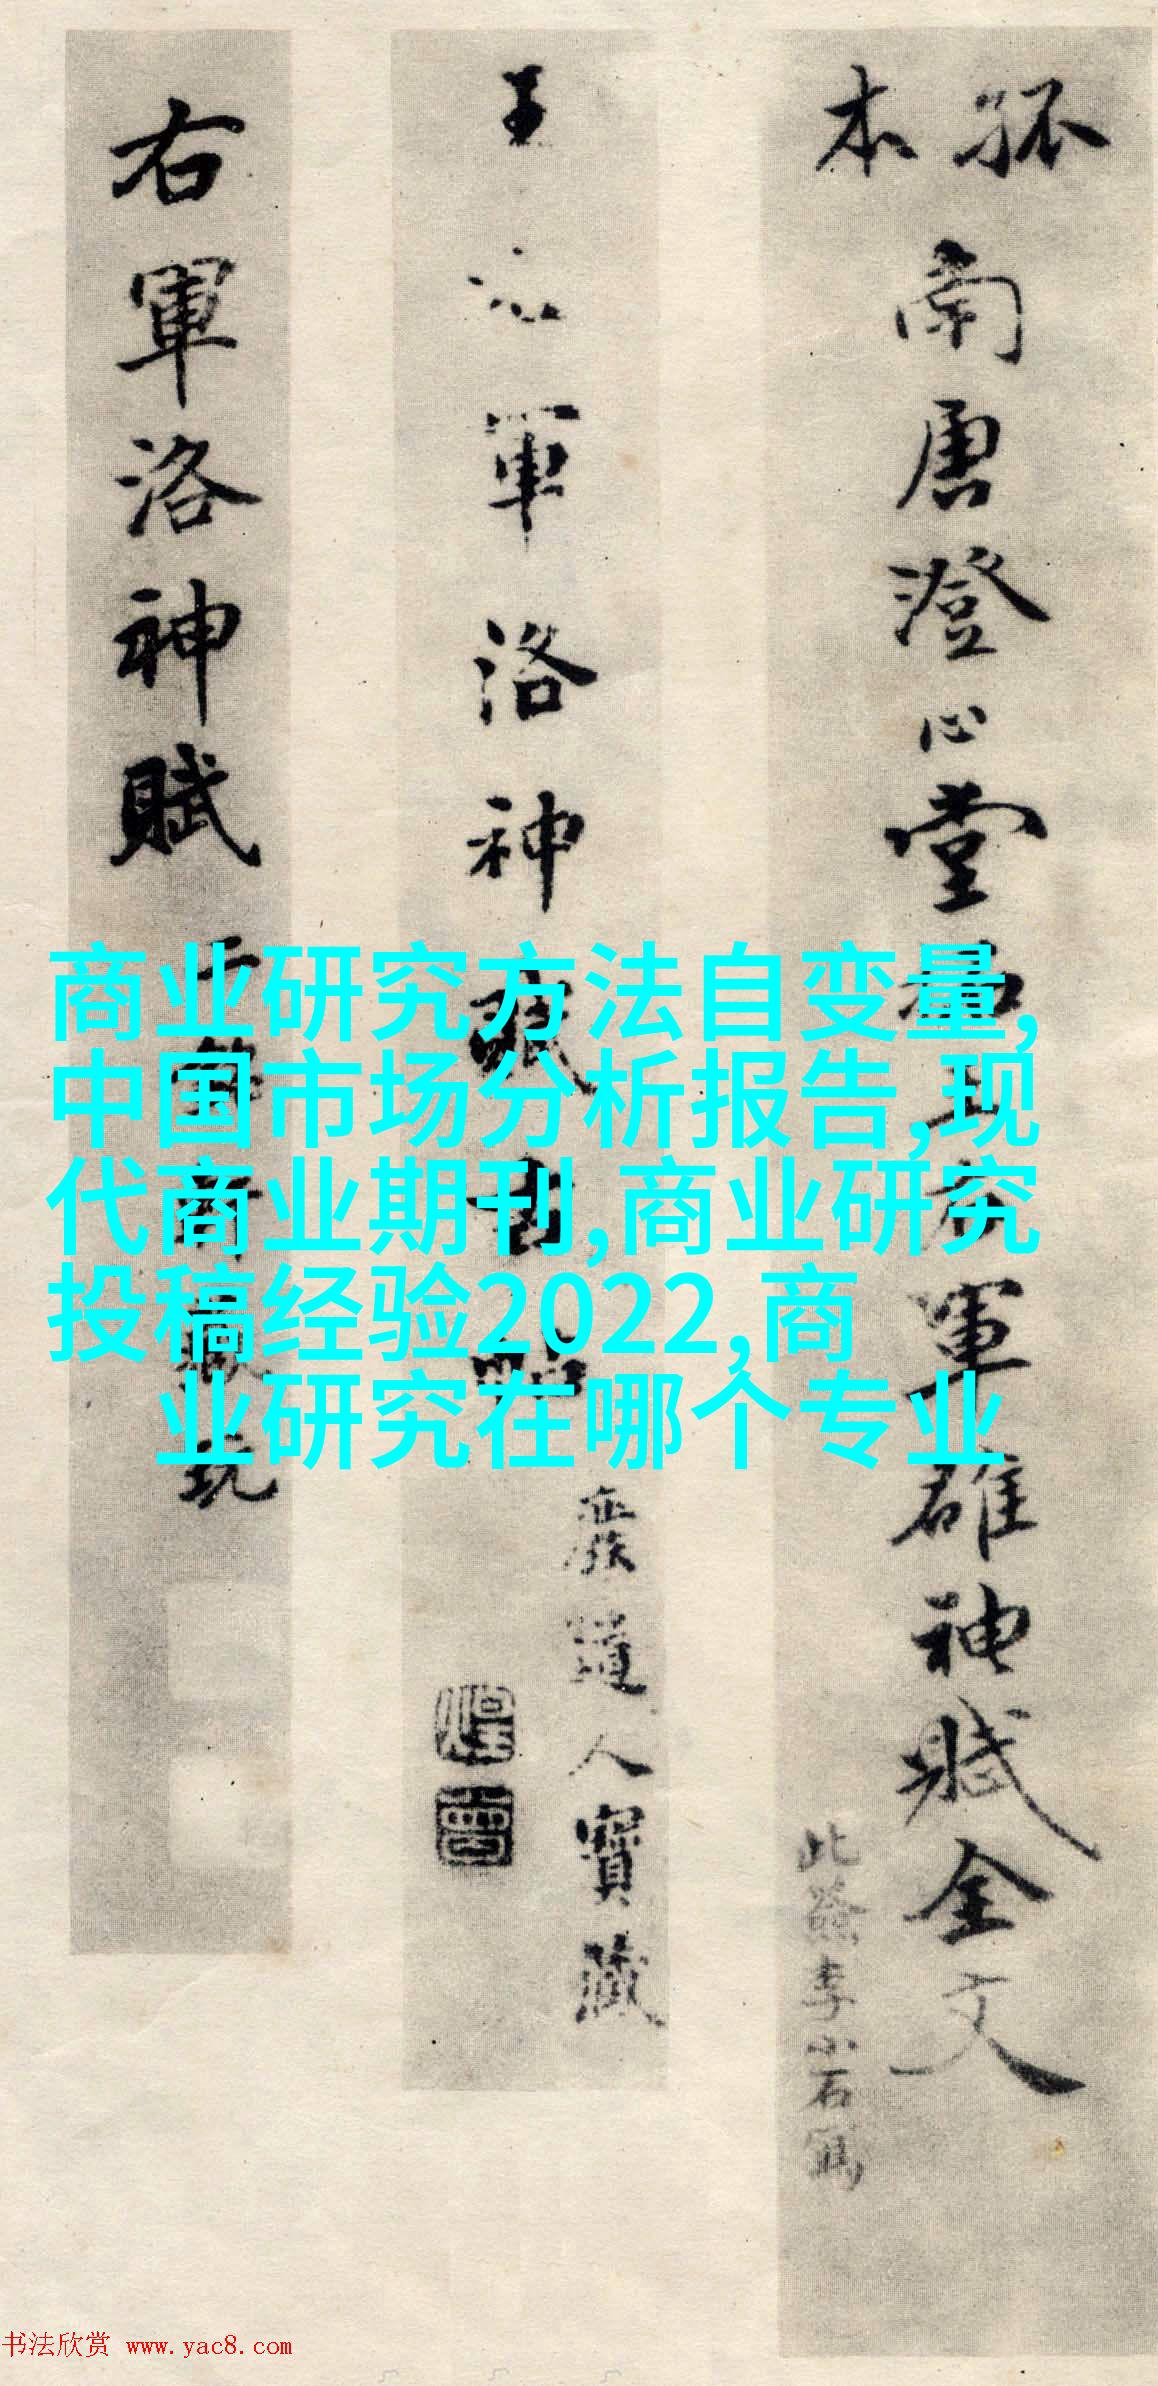 孤本
南唐澄心堂
軍雒神賦全文
此籤李小石寫
王
軍洛神
廢道人寶藏
右軍洛神賦
商业研究方法自变量,
中国市场分析报告,现
代商业期刊,商业研究
投稿经验2022,商
业研究在哪个专业
书法欣赏 www.yac8.com